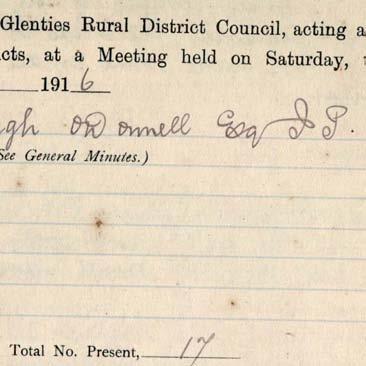 Glenties Rural District Council, acting a
cts, at a Meeting held on Saturday, t
1916
gh O'Donnell Esq J P.
See General Minutes.)
Total No. Present, 17